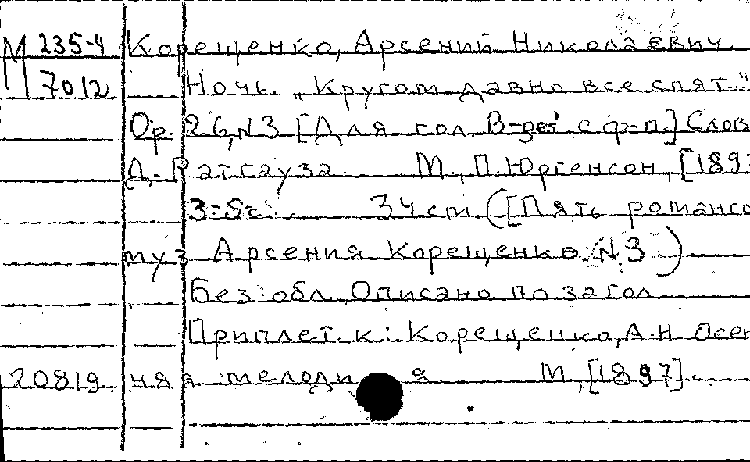 М 235-4 Корещенко, Арсений Николаевич
7012 Ночь. "Кругом давно все спят."
Ор. 26, N3 [Для гол. B-des' с ф-п.] Слов
Д. Ратгауза М., П. Юргенсон, [189
3-5с. 34 cm. ([Пять романсо
муз. Арсения Корещенко N3)
Без обл. Описано по загол.
Приплет. к: Корещенко, А.Н. Осен
20819 няя мелодия М., [1897].